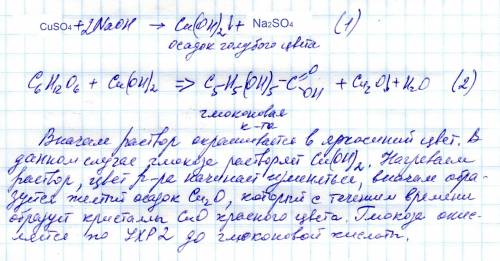 CuSO4+2NaOH → Cu(OH)2↓+ Na2SO4 (1)
осадок голубого цвета
C6H12O6 + Cu(OH)2 => C5H5(OH)5-C=O OH + Cu2O↓+H2O (2)
глюконовая
к-та
Вначале раствор окрашивается в яркосиний цвет. В
данном случае глюкоза растворят Cu(OH)2. Нагреваем
раствор, цвет р-ра начинает изменяться, вначале обра-
зуется желтый осадок Cu2O, который с течением времени
образует кристаллы CuO красного цвета. Глюкоза окис-
ляется по УХР2 до глюконовой кислоты.